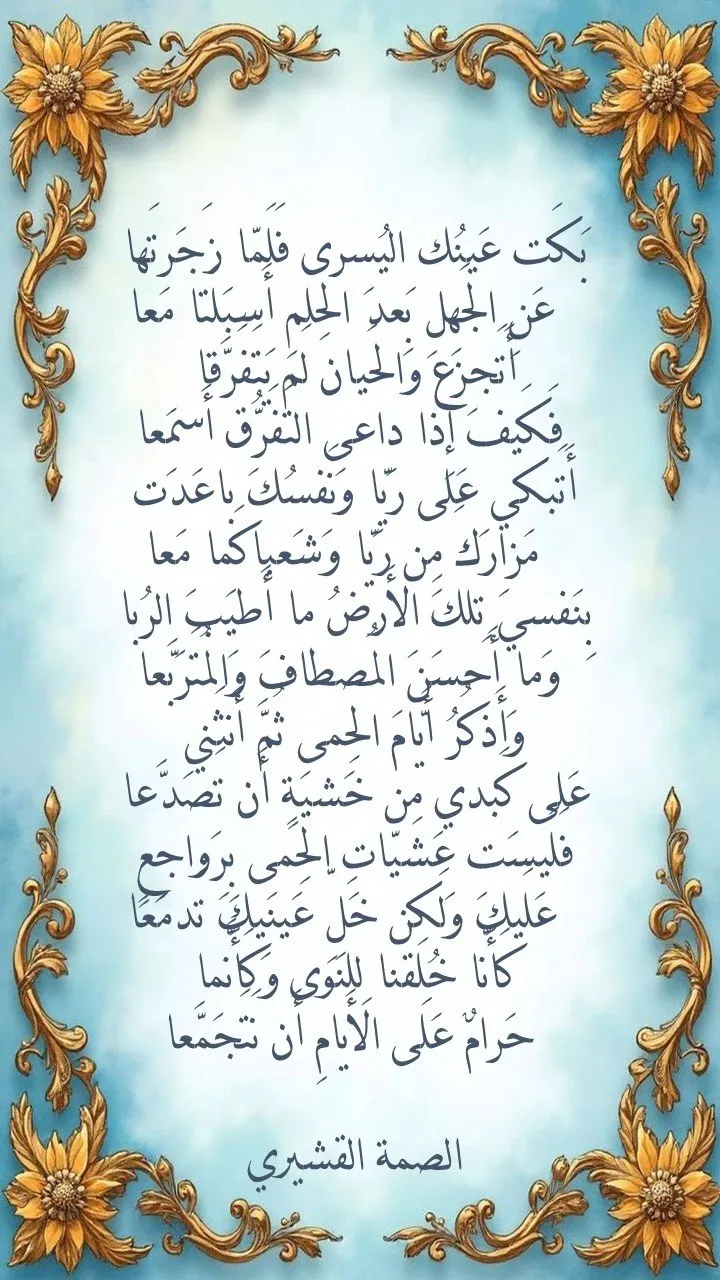 بَكَت عَينُك اليُسرى فَلَمّا زَجَرتَها
عَنِ الجَهل بَعدَ الحِلم أَسبَلتا مَعا
أَتجزَعَ وَالحيان لم يَتفرَّقا
فَكَيفَ إذا داعى التفرُّق أَسمَعا
أَتبكي عَلى ريّا وَنفسُكَ باعَدَت
مَزارَك مِن ريّا وَشَعباكما مَعا
بِنَفسيَ تلكَ الأَرضُ ما أَطيَبَ الرُبا
وَما أَحسَنَ المُصطافَ وَالمُتَربَّعا
وَأَذكُرُ أَيّامَ الحمى ثُمَّ أَنثِني
عَلى كَبدي مِن خَشيَةٍ أَن تصَدَّعا
فَليسَت عَشيّاتِ الحِمى بِرَواجعٍ
عَليكَ وَلكِن خَلِ عَينَيكَ تدمَعَا
كَأَنا خُلقنا لِلنَوى وَكَأَنما
حَرامٌ عَلَى الأَيامِ أَن نتجَمَّعا
الصمة القشيري